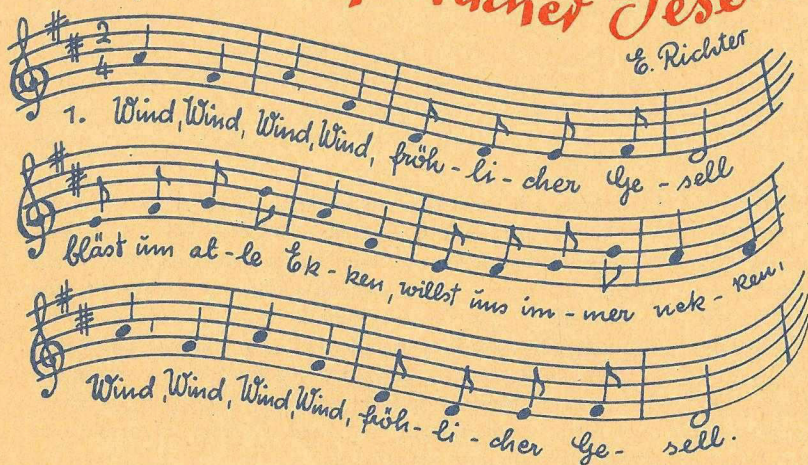 licher Gesell
E. Richter
2
4
1. Wind, Wind, Wind, Wind, fröh-li-cher Ge-sell
bläst um al-le Ek-ken, willst uns im-mer nek-ken,
Wind, Wind, Wind, Wind, fröh-li-cher Ge-sell.